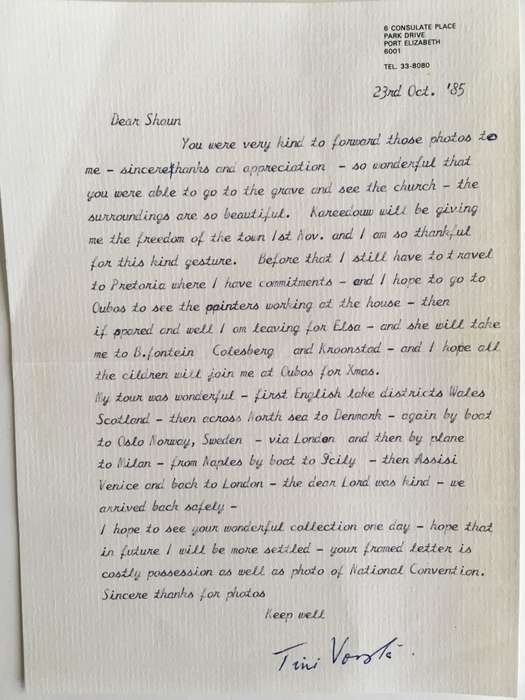 6 CONSULATE PLACE
PARK DRIVE
PORT ELIZABETH
6001
TEL. 33-8080
23rd Oct. '85
Dear Shaun
You were very kind to forward those photos to
me - sincere thanks and appreciation - so wonderful that
you were able to go to the grave and see the church - the
surroundings are so beautiful. Kareedouw will be giving
me the freedom of the town 1st Nov. and I am so thankful
for this kind gesture. Before that I still have to travel
to Pretoria where I have commitments - and I hope to go to
Oubos to see the painters working at the house - then
if spared and well I am leaving for Elsa - and she will take
me to B.fontein Colesberg and Kroonstad - and I hope all
the cildren will join me at Oubos for Xmas.
My tour was wonderful - first English lake districts Wales
Scotland - then across North sea to Denmark - again by boat
to Oslo Norway, Sweden - via London and then by plane
to Milan - from Naples by boat to Icily - then Assisi
Venice and back to London - the dear Lord was kind - we
arrived back safely -
I hope to see your wonderful collection one day - hope that
in future I will be more settled - your framed letter is
costly possession as well as photo of National Convention.
Sincere thanks for photos
Keep well
Tini Vorster